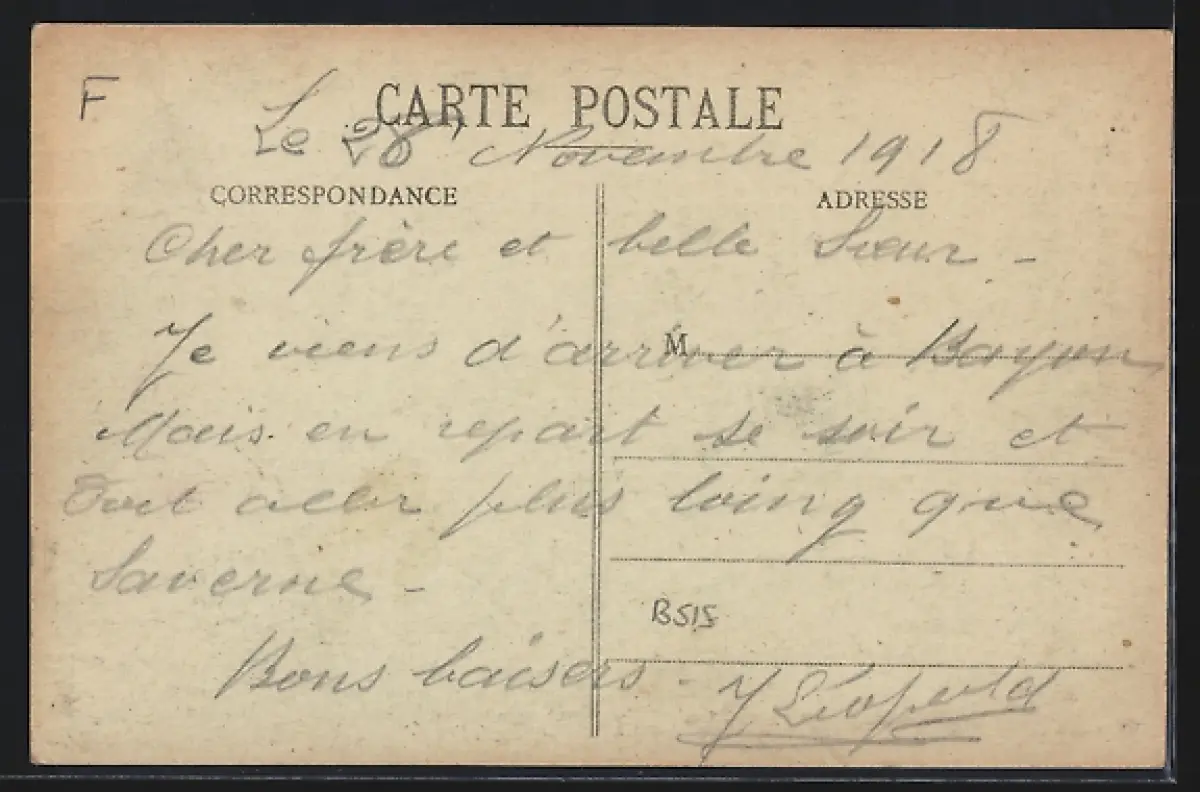 F
CARTE POSTALE
Le 28 Novembre 1918
CORRESPONDANCE
ADRESSE
Cher frère et belle Sœur -
M
Je viens d'arriver à Bayon
Mais en repart se soir et
Doit aller plus loing que
Saverne -
B515
Bons baisers - J Léopold